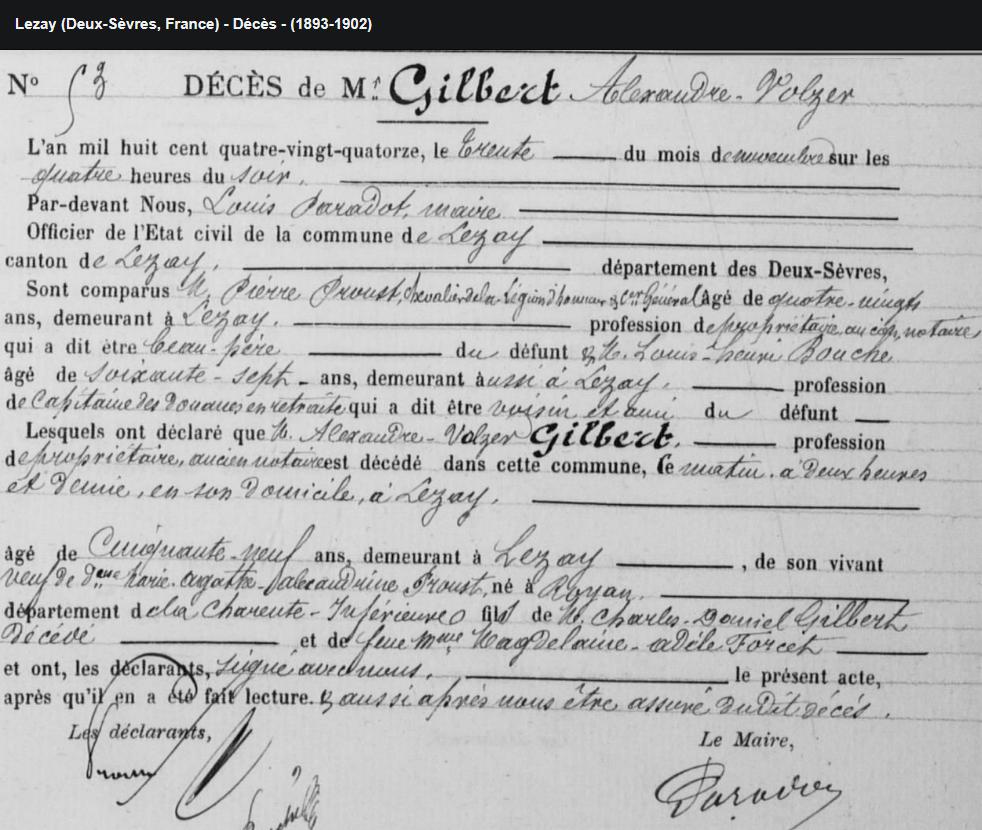 Lezay (Deux-Sèvres, France) - Décès - (1893-1902)
N° 53 DÉCÈS de Mr. Gilbert Alexandre-Volzer
L'an mil huit cent quatre-vingt-quatorze, le trente du mois de novembre sur les
quatre heures du soir.
Par-devant Nous, Louis Paradot, maire
Officier de l'Etat civil de la commune de Lezay
canton de Lezay. département des Deux-Sèvres,
Sont comparus M. Pierre Proust, Chevalier de la Légion d'honneur & Cer Général âgé de quatre-vingts
ans, demeurant à Lezay. profession de propriétaire, ancien notaire
qui a dit être beau-père du défunt & M. Louis-henri Bouche
âgé de soixante-sept ans, demeurant aussi à Lezay. profession
de Capitaine des Douanes en retraite qui a dit être voisin et ami du défunt
Lesquels ont déclaré que M. Alexandre-Volzer Gilbert. profession
de propriétaire, ancien notaire est décédé dans cette commune, ce matin à deux heures
et demie, en son domicile, à Lezay.
âgé de Cinquante-neuf ans, demeurant à Lezay, de son vivant
veuf de dame Marie-agathe-alexandrine Proust, né à Royan.
département de la Charente-Inférieure fils de M. Charles-Daniel Gilbert
Décédé et de feue Mme Magdelaine-adèle Forcet
et ont, les déclarants, signé avec nous. le présent acte,
après qu'il en a été fait lecture. & aussi après nous être assuré du dit décès.
Les déclarants, Le Maire,
Proust Paradot